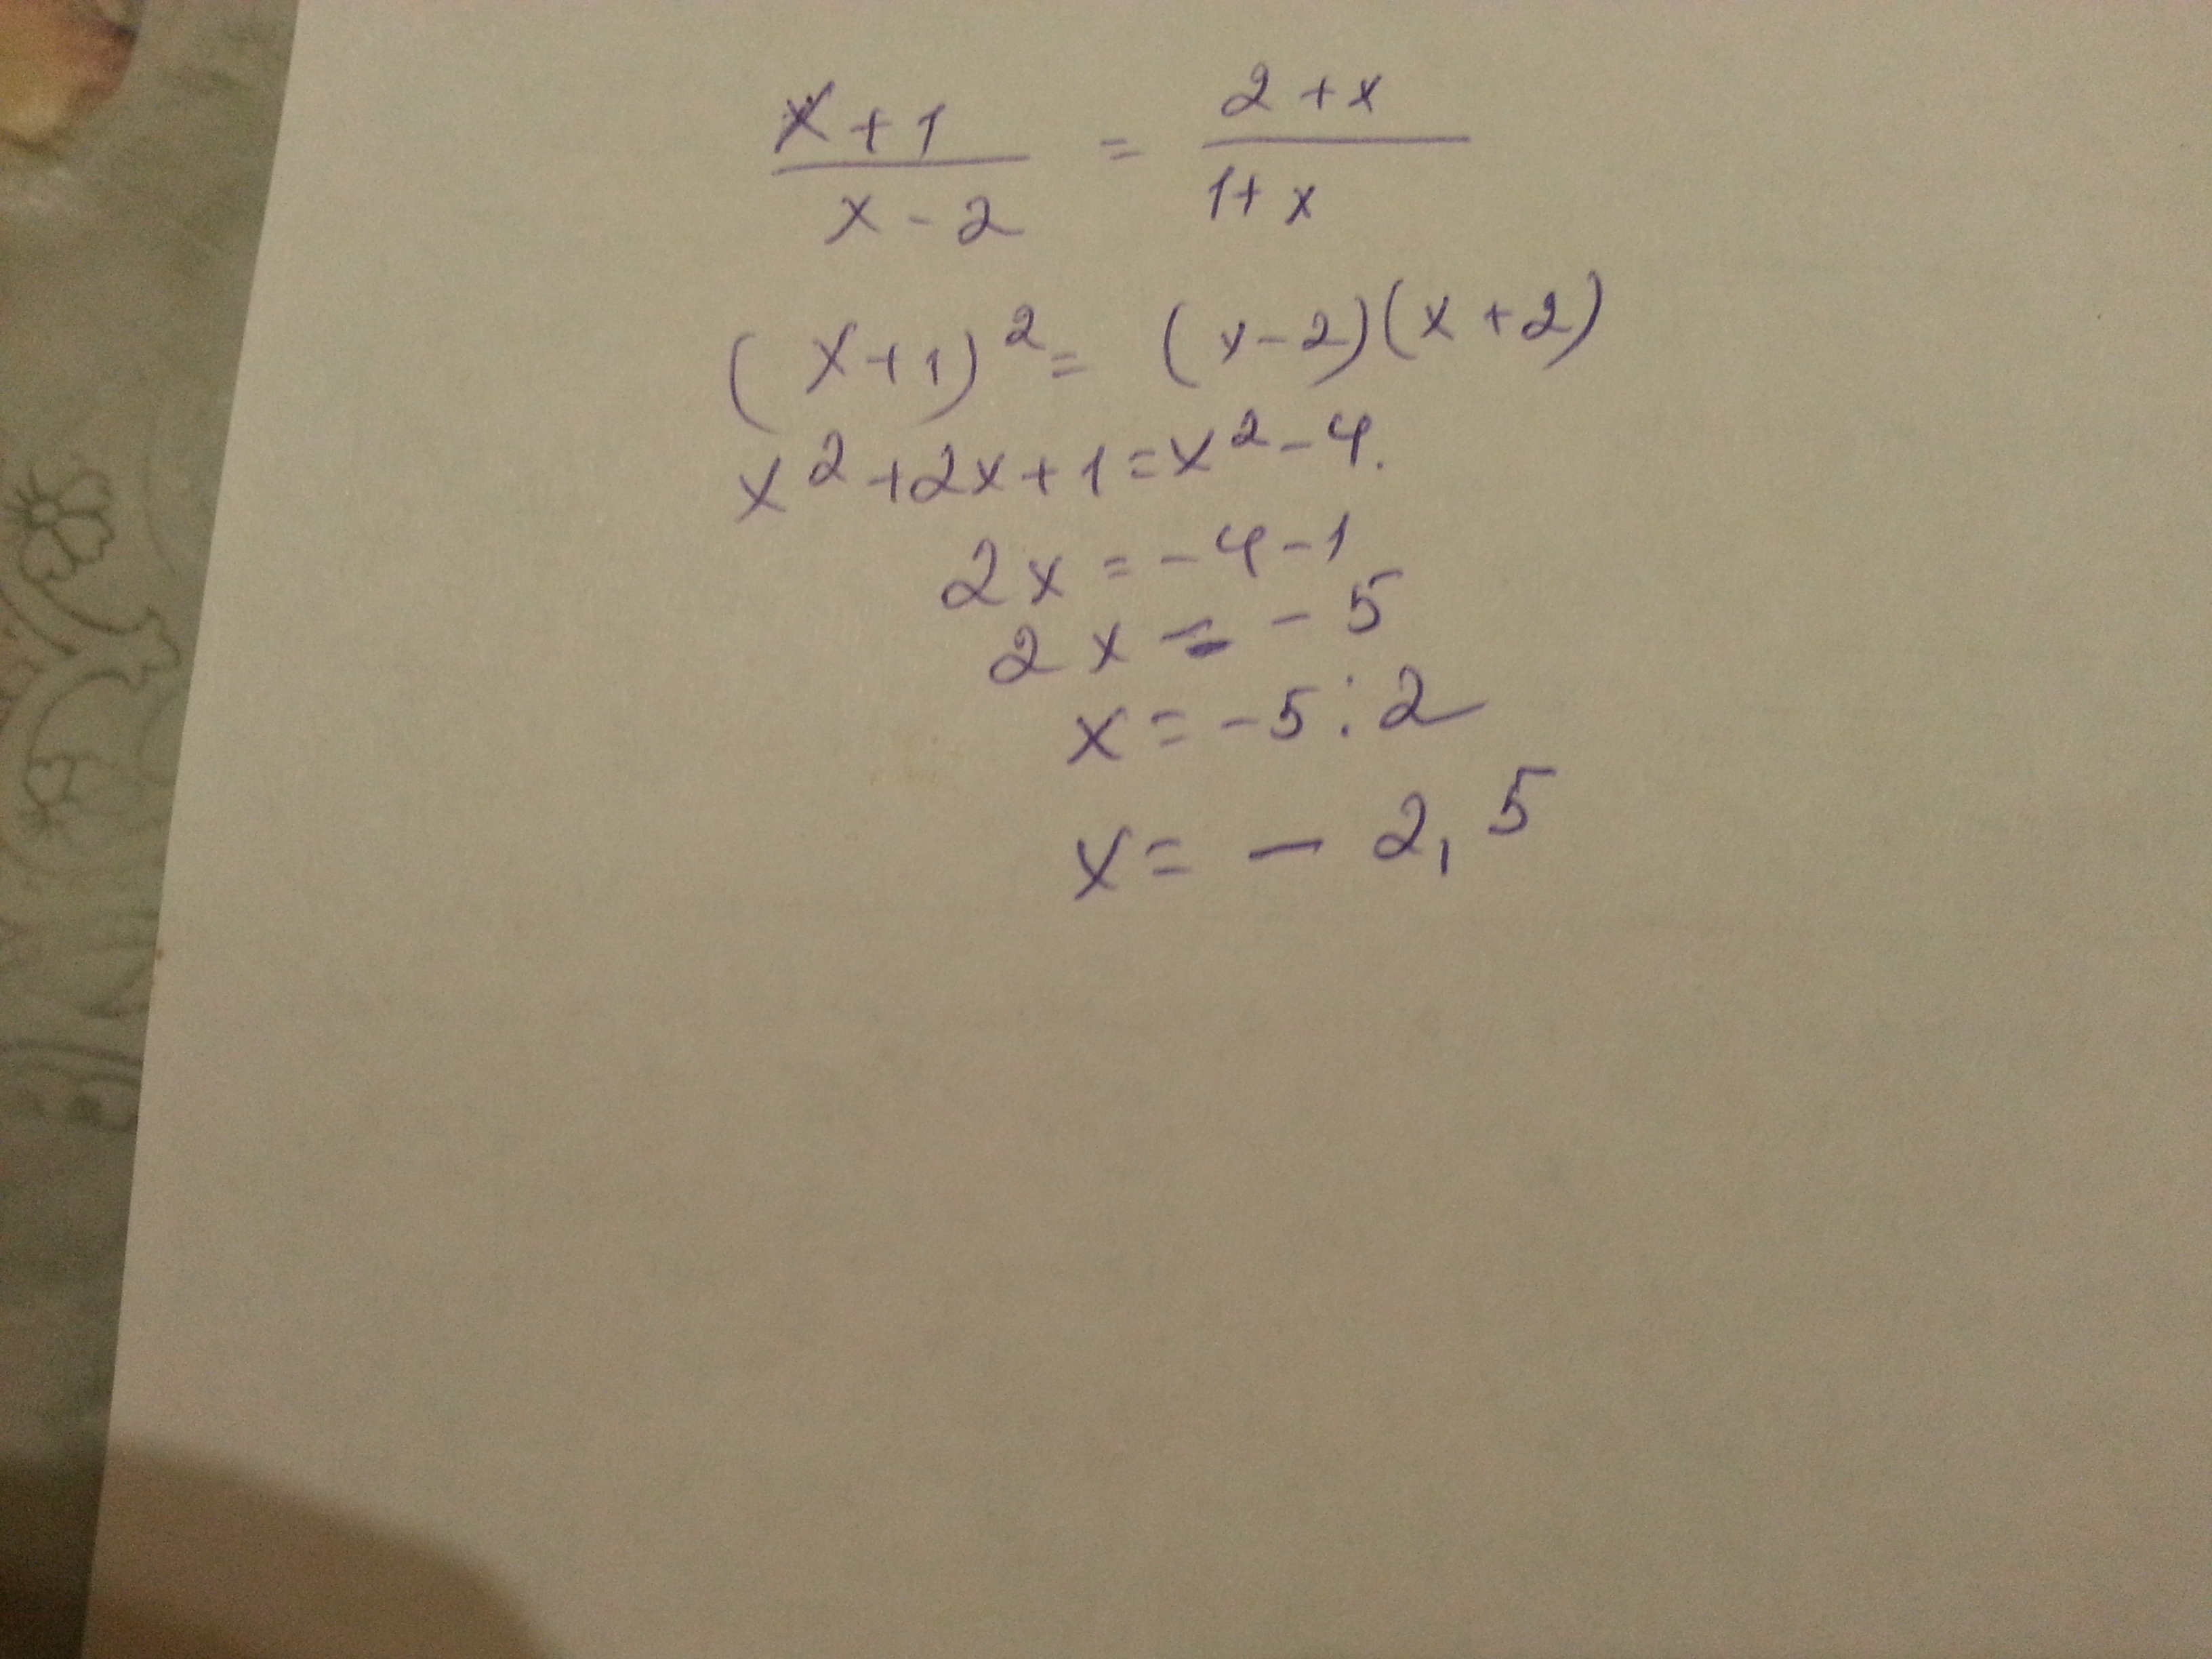 x + 1 / x - 2 = 2 + x / 1 + x
(x+1)² = (x-2)(x+2)
x²+2x+1=x²-4.
2x = -4-1
2x = -5
x = -5:2
x = -2,5